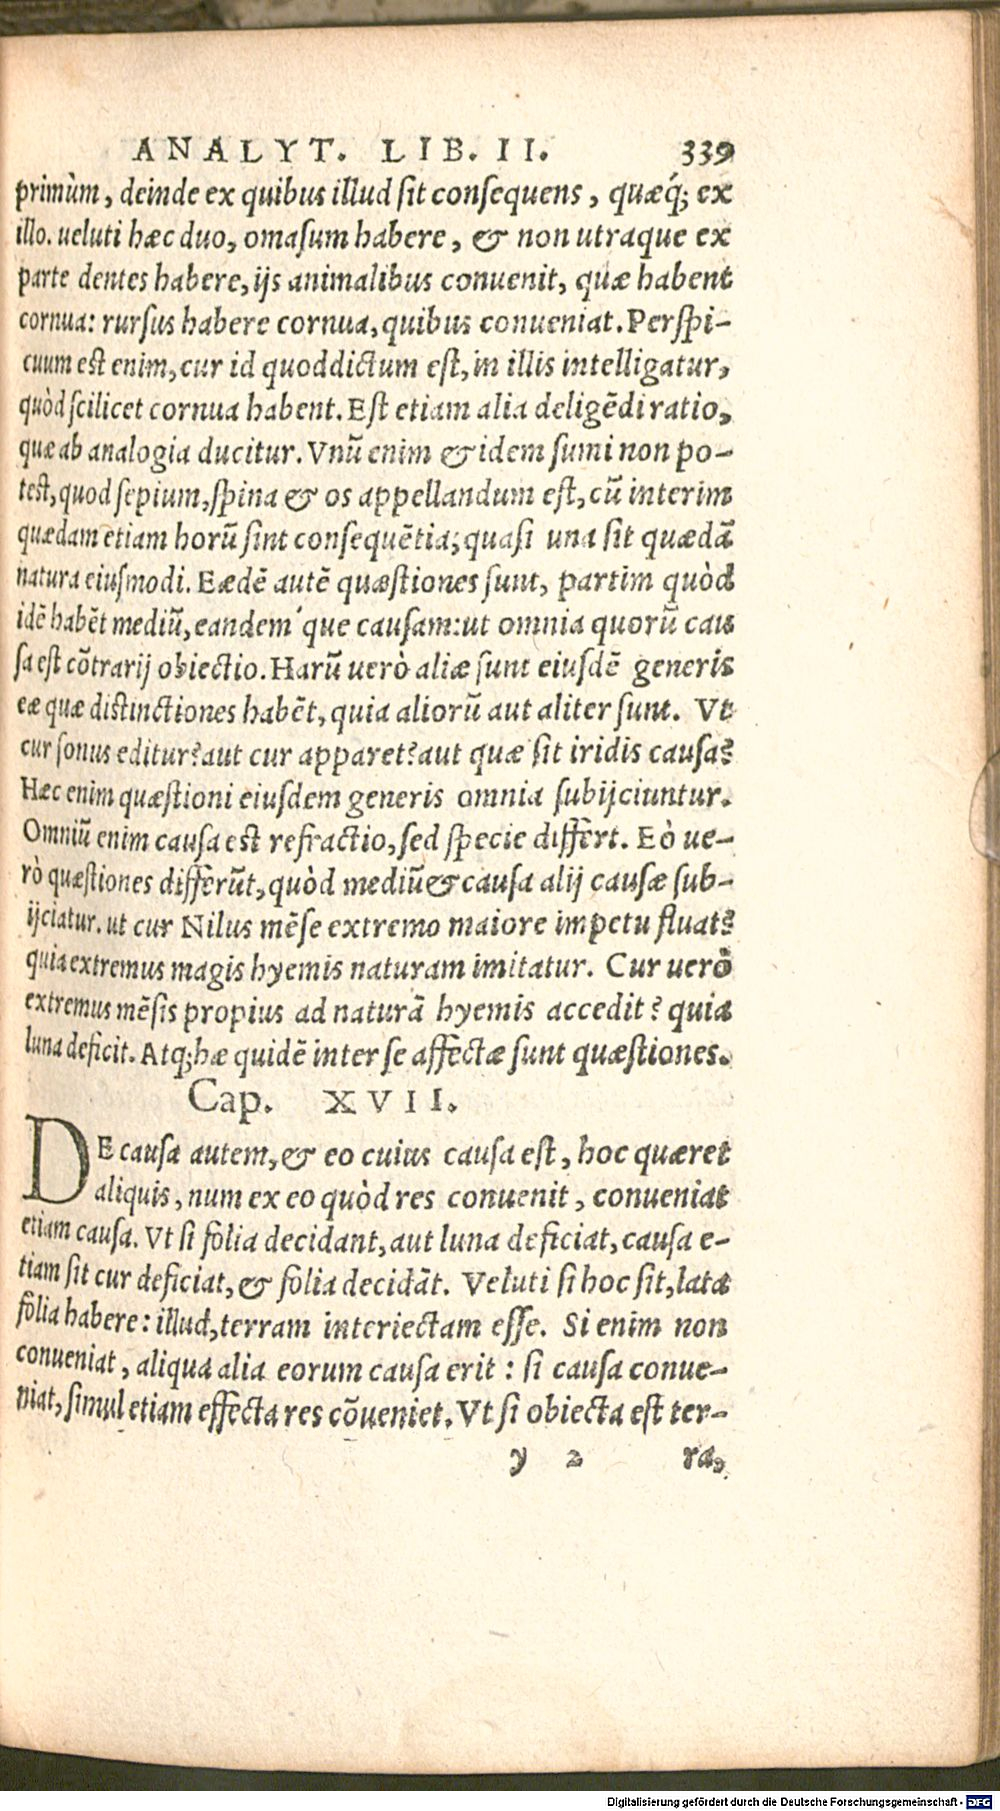 ANALYT. LIB. II. 339
primùm, deinde ex quibus illud sit consequens, quæq́; ex
illo. ueluti hæc duo, omasum habere, & non utraque ex
parte dentes habere, ijs animalibus conuenit, quæ habent
cornua: rursus habere cornua, quibus conueniat. Perspi-
cuum est enim, cur id quod dictum est, in illis intelligatur,
quòd scilicet cornua habent. Est etiam alia deligẽdi ratio,
quæ ab analogia ducitur. Vnũ enim & idem sumi non po-
test, quod sepium, spina & os appellandum est, cũ interim
quædam etiam horũ sint consequẽtia; quasi una sit quædã
natura eiusmodi. Eædẽ autẽ quæstiones sunt, partim quòd
idẽ habẽt mediũ, eandem´que causam: ut omnia quorũ cau
sa est cõtrarij obiectio. Harũ uerò aliæ sunt eiusdẽ generis
eæ quæ distinctiones habẽt, quia aliorũ aut aliter sunt. Vt
cur sonus editur? aut cur apparet? aut quæ sit iridis causa?
Hæc enim quæstioni eiusdem generis omnia subijciuntur.
Omniũ enim causa est refractio, sed specie differt. Eò ue-
rò quæstiones differũt, quòd mediũ & causa alij causæ sub-
ijciatur. ut cur Nilus mẽse extremo maiore impetu fluat?
quia extremus magis hyemis naturam imitatur. Cur uerò
extremus mẽsis propius ad naturã hyemis accedit? quia
luna deficit. Atq; hæ quidẽ inter se affectæ sunt quæstiones.
Cap. XVII.
DE causa autem, & eo cuius causa est, hoc quæret
aliquis, num ex eo quòd res conuenit, conueniat
etiam causa. Vt si folia decidant, aut luna deficiat, causa e-
tiam sit cur deficiat, & folia decidãt. Veluti si hoc sit, lata
folia habere: illud, terram interiectam esse. Si enim non
conueniat, aliqua alia eorum causa erit: si causa conue-
niat, simul etiam effecta res cõueniet. Vt si obiecta est ter-
y 2 ra,
Digitalisierung gefördert durch die Deutsche Forschungsgemeinschaft - DFG